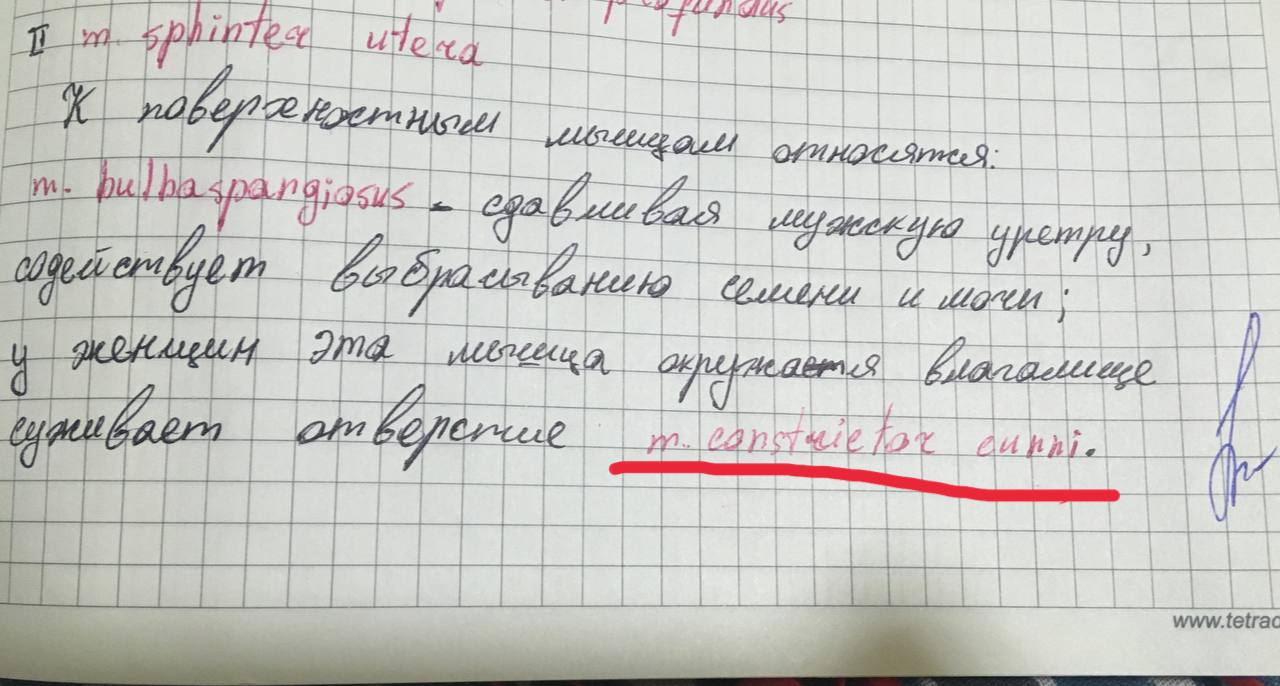 profundus
II m. sphinter utera
К поверхностным мышцам относятся:
m. bulbaspangiosus - сдавливая мужскую уретру,
содействует выбрасыванию семени и мочи;
у женщин эта мышца окружается влагалище
суживает отверстие m. constrictor cunni.
www.tetrad